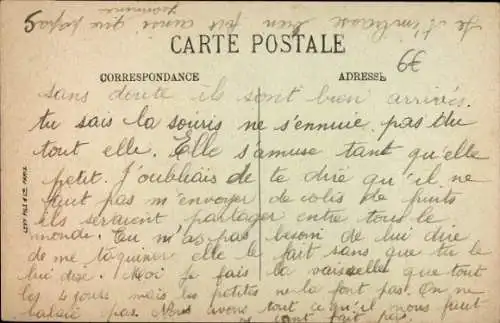 5
Je t'embrasse bien fort aussi que papa
CARTE POSTALE
6€
CORRESPONDANCE
ADRESSE
sans doute ils sont bien arrivés.
tu sais la souris ne s'ennuie pas du
tout elle. Elle s'amuse tant qu'elle
petit. J'oubliais de te dire qu'il ne
faut pas m'envoyer de colis de fruits
ils seraient partager entre tous le
monde. Tu m'as pas besoin de lui dire
de me taquiner elle le fait sans que tu le
lui dise. Moi je fais la vaisselle que tout
les 4 jours mais les petites ne la font pas. On ne
balaie pas. Nous avons tout ce qu'il nous faut
LEVY FILS & CIE. PARIS